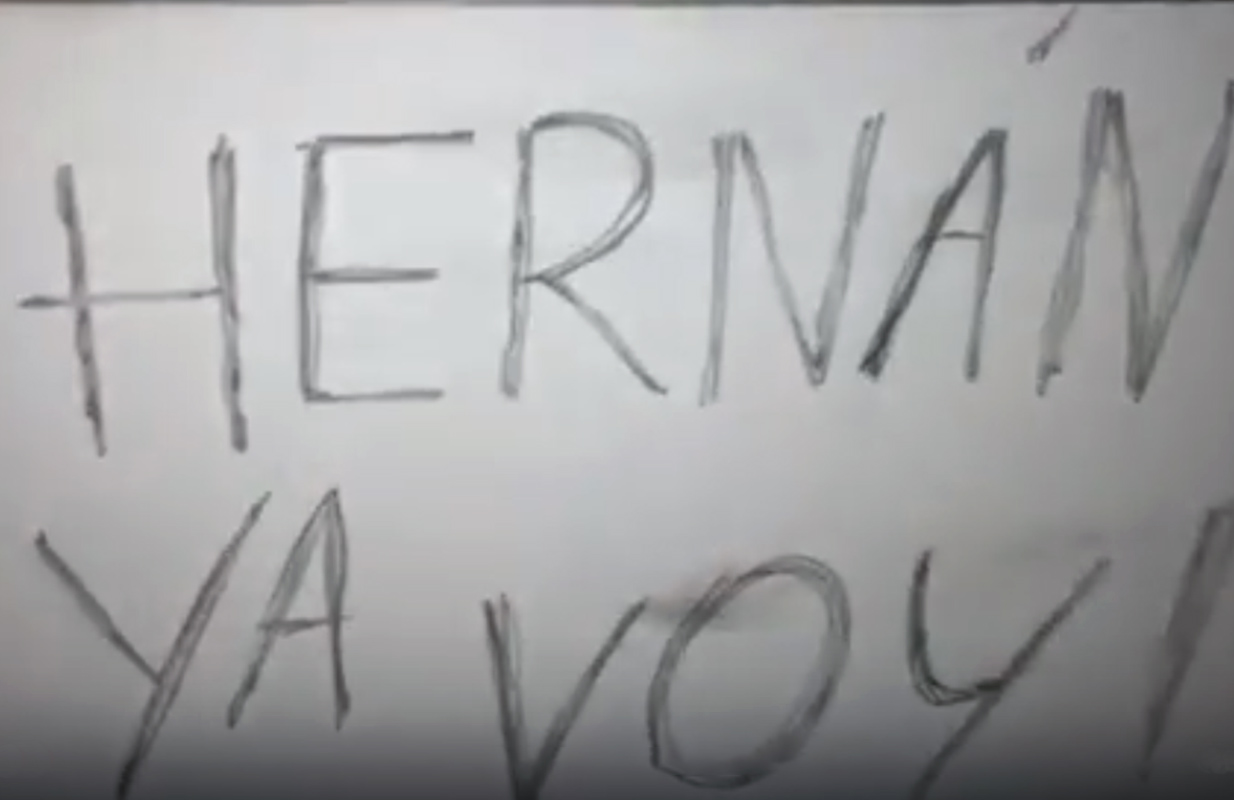 HERNÁN
YA VOY!